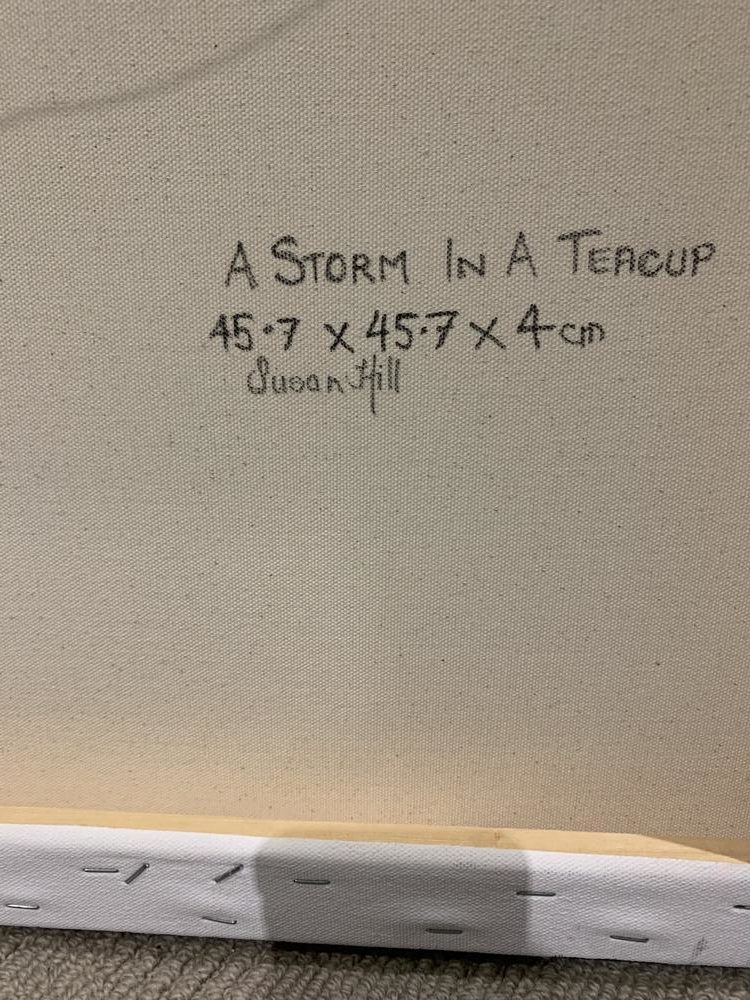 A STORM IN A TEACUP
45.7 x 45.7 x 4 cm
Susan Hill